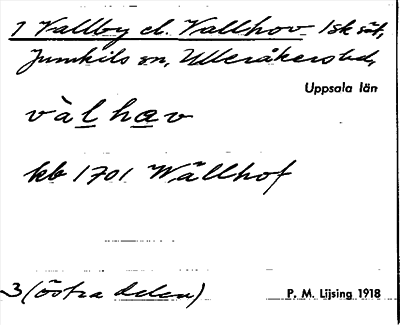 1 Vallby el. Vallhov 1sk sät,
Jumkils sn, Ulleråkers hd,
Uppsala län
vàl hav
kb 1701 Wällhof
3 (östra delen)
P. M. Lijsing 1918